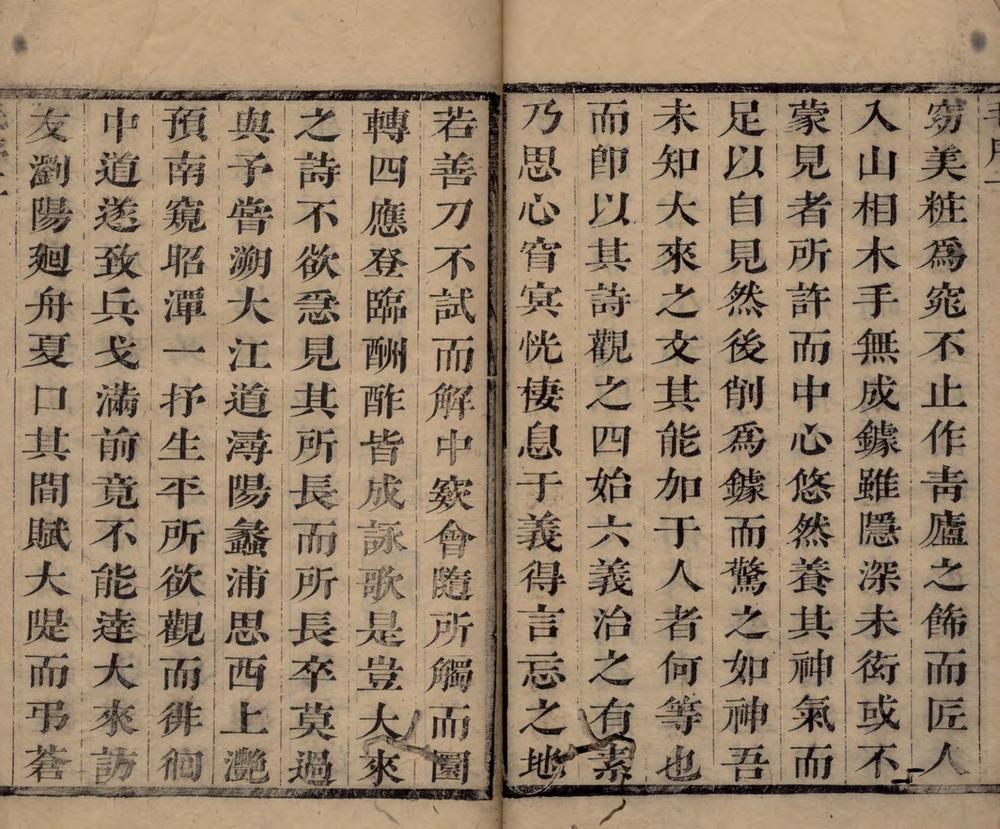 窈美粧爲窕不止作靑廬之飾而匠人
入山相木手無成鐻雖隱深未衒或不
蒙見者所許而中心悠然養其神氣而
足以自見然後削爲鐻而驚之如神吾
未知大來之文其能加于人者何等也
而卽以其詩觀之四始六義治之有素
乃思心窅㝠恍棲息于義得言忘之地
若善刀不試而解中窾會隨所觸而圜
轉四應登臨酬酢皆成詠歌是豈大來
之詩不欲惎見其所長而所長卒莫過
與予嘗溯大江道潯陽蠡浦思西上灔
預南窺昭潭一抒生平所欲觀而徘徊
中道遂致兵戈滿前竟不能逹大來訪
友瀏陽廻舟夏口其間賦大隄而弔蒼